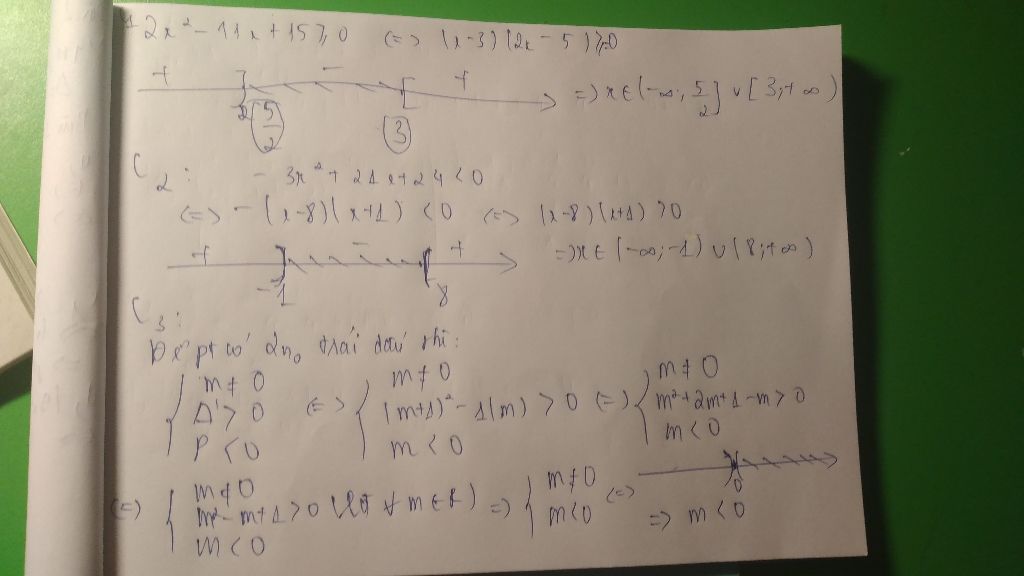 2x² - 11x + 15 ≥ 0 <=> (x-3)(2x - 5) ≥ 0
+ - +
5/2 3 => x ∈ (-∞; 5/2] ∪ [3; +∞)
C2: - 3x² + 21x + 24 < 0
<=> - (x-8)(x+1) < 0 <=> (x-8)(x+1) > 0
+ - + => x ∈ (-∞; -1) ∪ (8; +∞)
-1 8
C3:
Để pt có 2 no trái dấu thì:
{ m ≠ 0 <=> { m ≠ 0 <=> { m ≠ 0
Δ' > 0 (m+1)² - 1(m) > 0 m² + 2m + 1 - m > 0
P < 0 m < 0 m < 0
<=> { m ≠ 0 => { m ≠ 0 <=> 0
m² - m + 1 > 0 (lđ ∀ m ∈ R) m < 0 => m < 0
m < 0